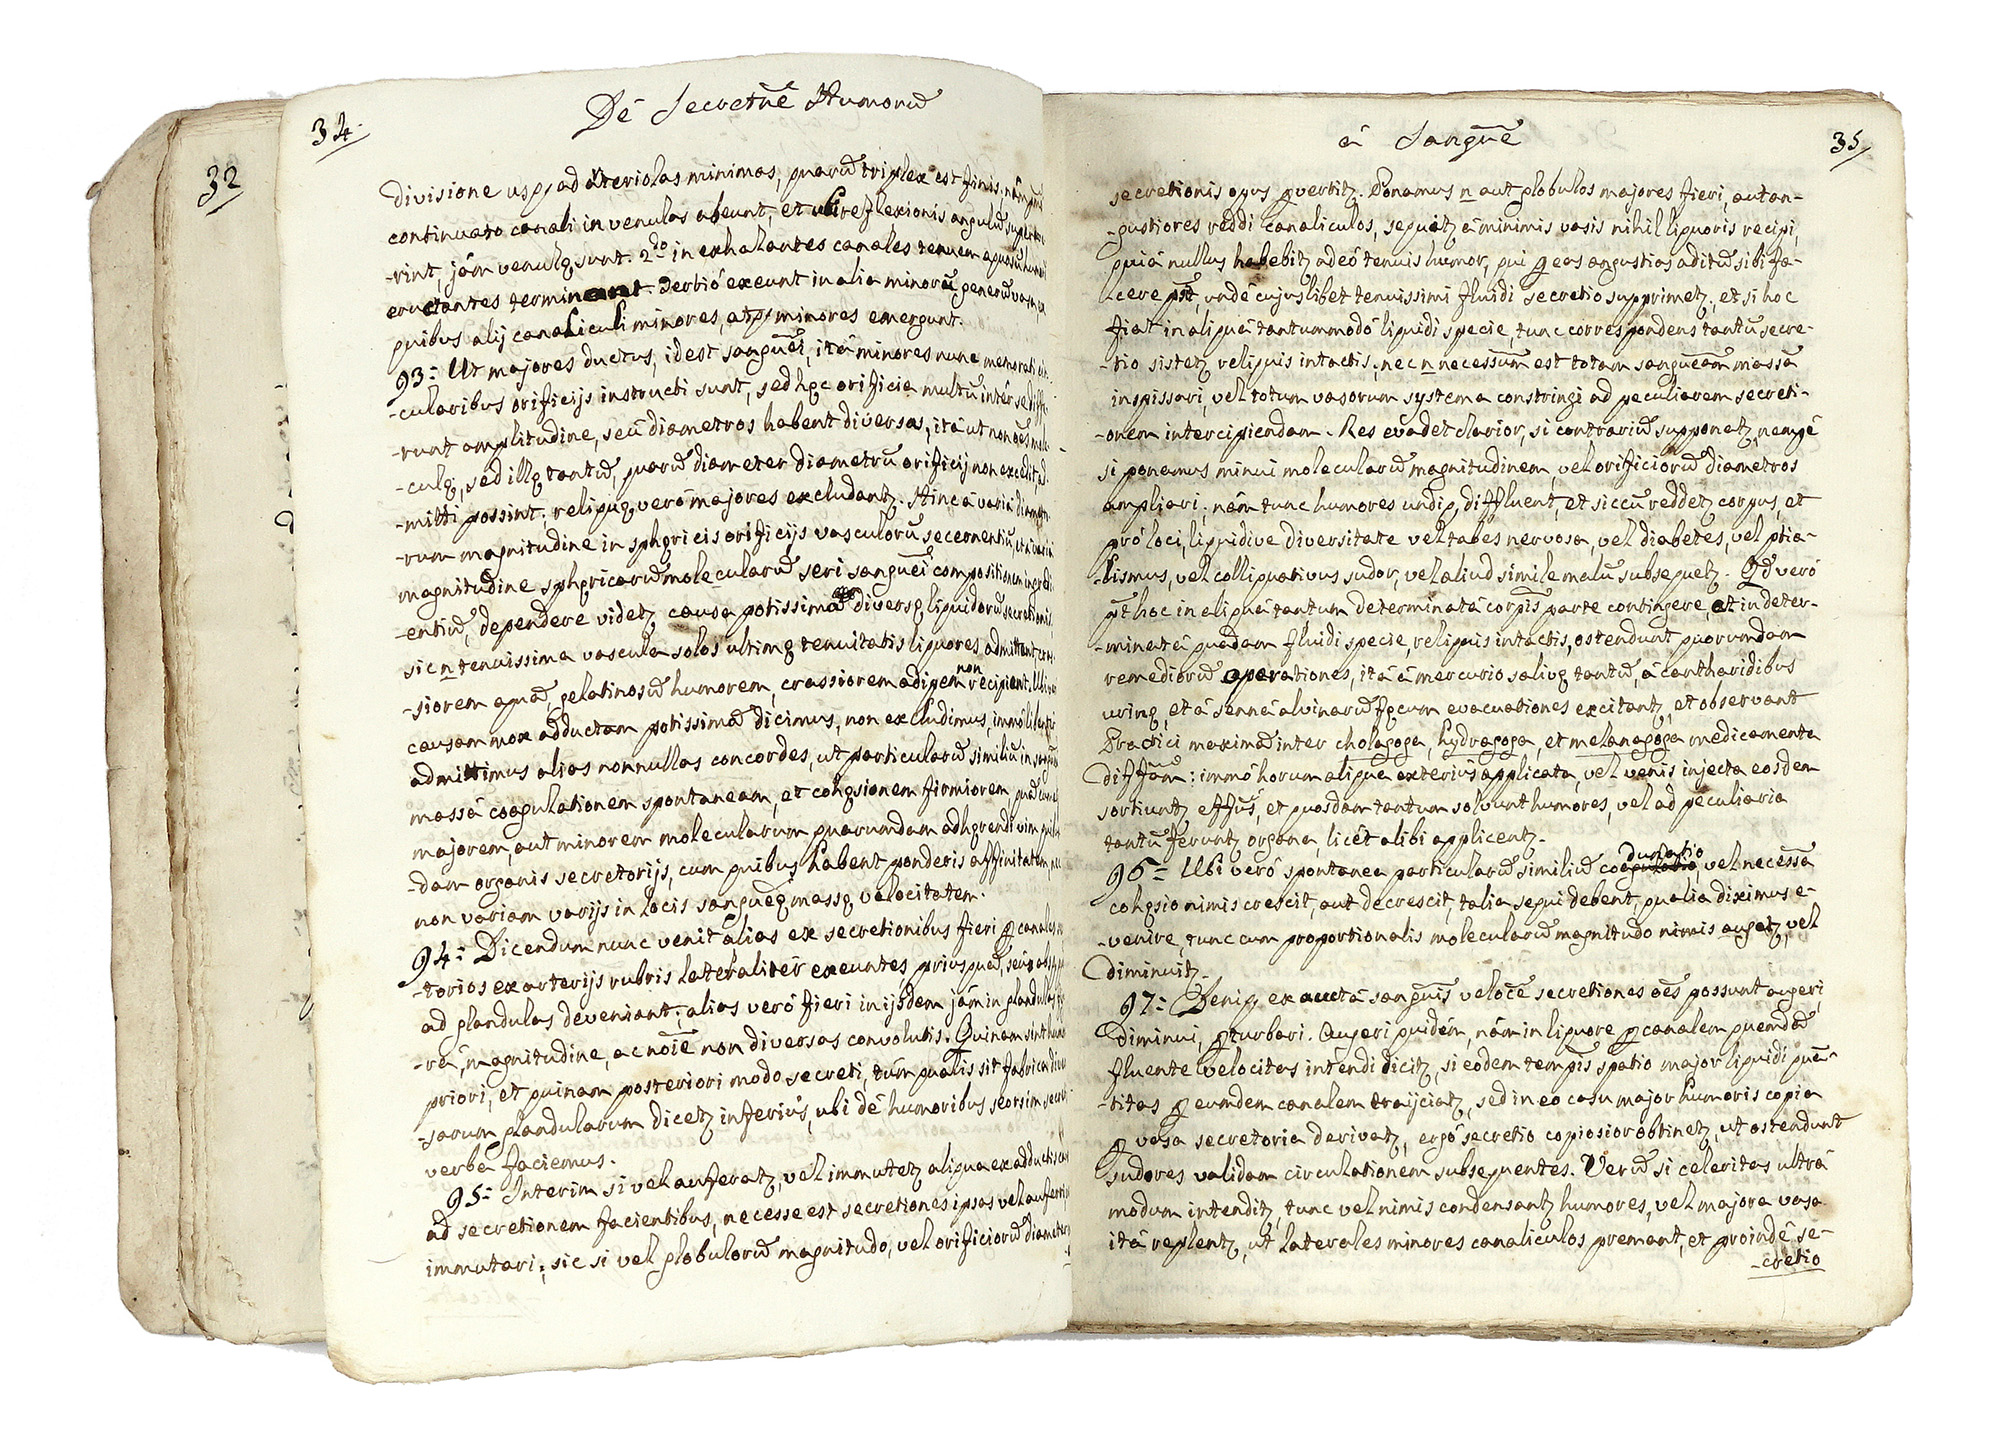 32
34
De Secretñe Humorũ
divisione usq; ad arteriolas minimas, quarũ triplex est finis, nãm
continuato canali in venulas abeunt, et ubi reflexionis angulũ
-rint, jám venulę sunt. 2.do in exhalantes canales tenuem
eructantes terminant. Tertió exeunt in alia minorũ generũ
quibus alij canaliculi minores, atq; minores emergunt.
93= Ut majores ductus, id est sanguẽi, ità minores nunc memorati
-cularibus orificijs instructi sunt, sed hęc orificia multũ intér se
-runt amplitudine, seú diametros habent diversas, ità ut non oẽs
-culę, sed illę tantũ, quarũ diameter diametrũ orificij non excedit, ad-
-mitti possint: reliquę veró majores excludantꝫ. Hinc á variâ
-rum magnitudine in sphęricis orificijs vasculorũ secernentiũ, et á
magnitudine sphęricarũ molecularũ seri sanguẽi compositionem
-entiũ, dependere videtꝫ causa potissima diversę liquidorũ secretionis.
sic n tenuissima vascula solos ultimę tenuitatis liquores admittent
-siorem aquã, gelatinosũ humorem, crassiorem adipem non recipient.
causam mox adductam potissimã dicimus, non excludimus, immò
admittimus alias nonnullas concordes, ut particularũ similiũ in
massâ coagulationem spontaneam, et cohęsionem firmiorem,
majorem, aut minorem molecularum quarumdam adhęrendi vim
-dam organis secretorijs, cum quibus habent ponderis affinitatem,
non variam varijs in locis sanguẽę massę velocitatem.
94= Dicendum nunc venit alias ex secretionibus fieri ꝑ canales
-torios ex arterijs rubris lateralitér exeuntes priusquã,
ad glandulas deveniant; alias veró fieri in ijsdem jám in glandulas
-rê, magnitudine, ac noĩe non diversas convolutis. Quinam sint
priori, et quinam posteriori modo secreti, túm qualis sit fabrica
-sarum glandularum dicetꝫ inferiús, ubi dé humoribus seorsim
verba faciemus.
95= Interim si vel auferatꝫ, vel immutetꝫ aliqua ex adductis
ad secretionem facientibus, necesse est secretiones ipsas vel
immutari; sic si vel globulorũ magnitudo, vel orificiorũ
á Sangũe
35
secretionis opus ꝑvertitꝫ. Ponamus n aut globulos majores fieri, aut an-
-gustiores reddi canaliculos, sequitꝫ á minimis vasis nihil liquoris recipi,
quiá nullus habebitꝫ adeó tenuis humor, qui ꝑ eas angustias aditũ sibi fa-
-cere pst̃, undé cujuslibet tenuissimi fluidi secretio supprimetꝫ; et si hoc
fiat in aliquâ tantummodó liquidi specie, tunc correspondens tantũ secre-
-tio sistetꝫ reliquis intactis, nec n necessum est totam sanguẽam massã
inspissari, vel totum vasorum systema constringi ad peculiarem secreti-
-onem intercipiendam. Res evadet clarior, si contrariũ supponatꝫ, nempé
si ponamus minui molecularũ magnitudinem, vel orificiorũ diametros
ampliari, nám tunc humores undiq; diffluent, et siccũ reddetꝫ corpus, et
pró loci, liquidive diversitate vel tabes nervosa, vel diabetes, vel ptia-
-lismus, vel colliquativus sudor, vel aliud simile malũ subsequetꝫ. Qd veró
pst̃ hoc in aliquâ tantum determinatâ corp̃is parte contingere, et in deter-
-minatâ quadam fluidi specie, reliquis intactis, ostendunt quorumdam
remediorũ operationes, ità á mercurio salivę tantũ, á cantharidibus
urinę, et á sennâ alvinarũ fęcum evacuationes excitantꝫ, et observant
Practici maximã inter cholagoga, hydragoga, et melanagoga medicamenta
diffãm: immó horum aliqua exteriús applicata, vel venis injecta eosdem
sortiuntꝫ eff̃us, et quosdam tantum solvunt humores, vel ad peculiaria
tantũ feruntꝫ organa, licét alibi applicentꝫ.
96= Ubi veró spontanea particularũ similiũ coadunatio, vel necessa
cohęsio nimis crescit, aut decrescit, talia sequi debent, qualia diximus e-
-venire, tunc cum proportionalis molecularũ magnitudo nimis augetꝫ, vel
diminuitꝫ.
97= Deniq; ex auctâ sangũis velocẽ secretiones oẽs possunt augeri,
diminui, ꝑturbari. Augeri quidém, nám in liquore ꝑ canalem quemdã
fluente velocitas intendi dicitꝫ, si eodem temp̃is spatio major liquidi quã-
-titas ꝑ eumdem canalem traijciatꝫ, sed in eo casu major humoris copia
ꝑ vasa secretoria derivatꝫ, ergó secretio copiosior obtinetꝫ, ut ostendunt
sudores validam circulationem subsequentes. Verũ si celeritas ultrá
modum intenditꝫ, tunc vel nimis condensantꝫ humores, vel majora vasa
ità replentꝫ, ut laterales minores canaliculos premant, et proindé se-
-cretio